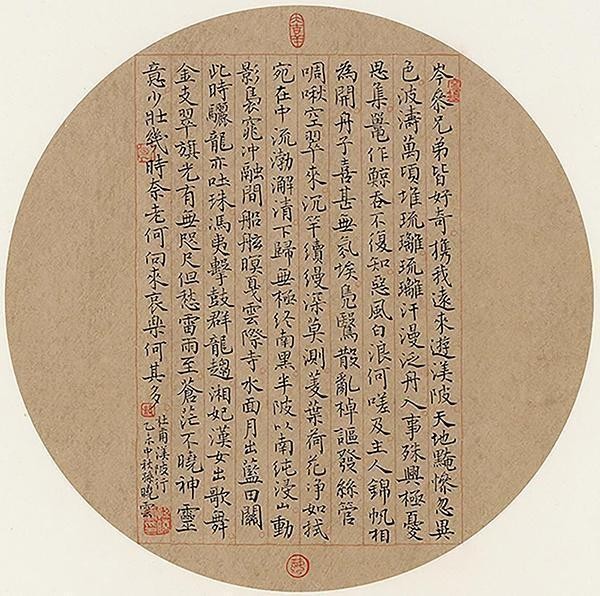 岑叅兄弟皆好奇携我遠來遊渼陂天地黤慘忽異
色波濤萬頃堆琉璃琉璃汗漫泛舟入事殊興極憂
思集鼉作鯨吞不復知惡風白浪何嗟及主人錦帆相
為開舟子喜甚無氛埃鳧鷖散亂棹謳發絲管
啁啾空翠來沉竿續縵深莫測菱葉荷花净如拭
宛在中流渤澥清下歸無極終南黑半陂以南純浸山動
影裊窕沖融間船舷暝戛雲際寺水面月出藍田關
此時驪龍亦吐珠馮夷擊鼓群龍趨湘妃漢女出歌舞
金支翠旗光有無咫尺但愁雷雨至蒼茫不曉神靈
意少壯幾時奈老何向來哀樂何其多
杜甫渼陂行
乙未中秋孫曉雲